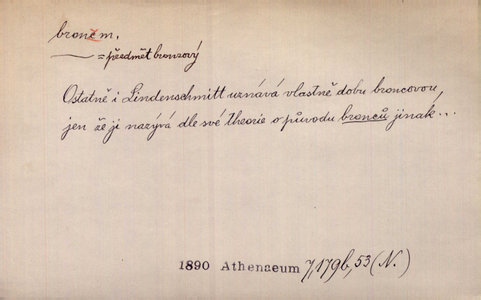 bronz m.
= předmět bronzový
Ostatně i Lindenschmitt uznává vlastně dobu broncovou,
jen že ji nazývá dle své theorie o původu bronců jinak...
1890 Athenaeum 7, 179b, 53 (N.)